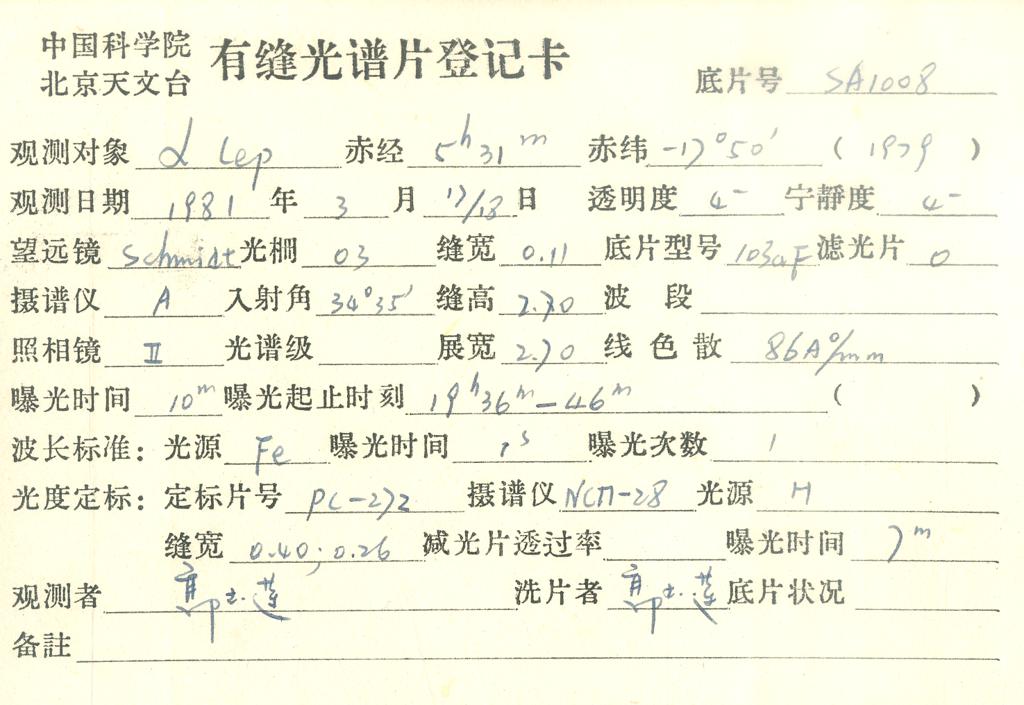 中国科学院
北京天文台
有缝光谱片登记卡
底片号 SA1008
观测对象 α Lep 赤经 5h31m 赤纬 -17°50′ ( 1979 )
观测日期 1981 年 3 月 17/18 日 透明度 4- 宁静度 4-
望远镜 Schmidt 光栅 03 缝宽 0.11 底片型号 103aF 滤光片 0
摄谱仪 A 入射角 34°35′ 缝高 2.70 波段
照相镜 II 光谱级 展宽 2.70 线色散 86A°/mm
曝光时间 10m 曝光起止时刻 19h36m-46m ( )
波长标准: 光源 Fe 曝光时间 1s 曝光次数 1
光度定标: 定标片号 PC-272 摄谱仪 光源 H
缝宽 0.40; 0.26 减光片透过率 曝光时间 7m
观测者 洗片者 底片状况
备註